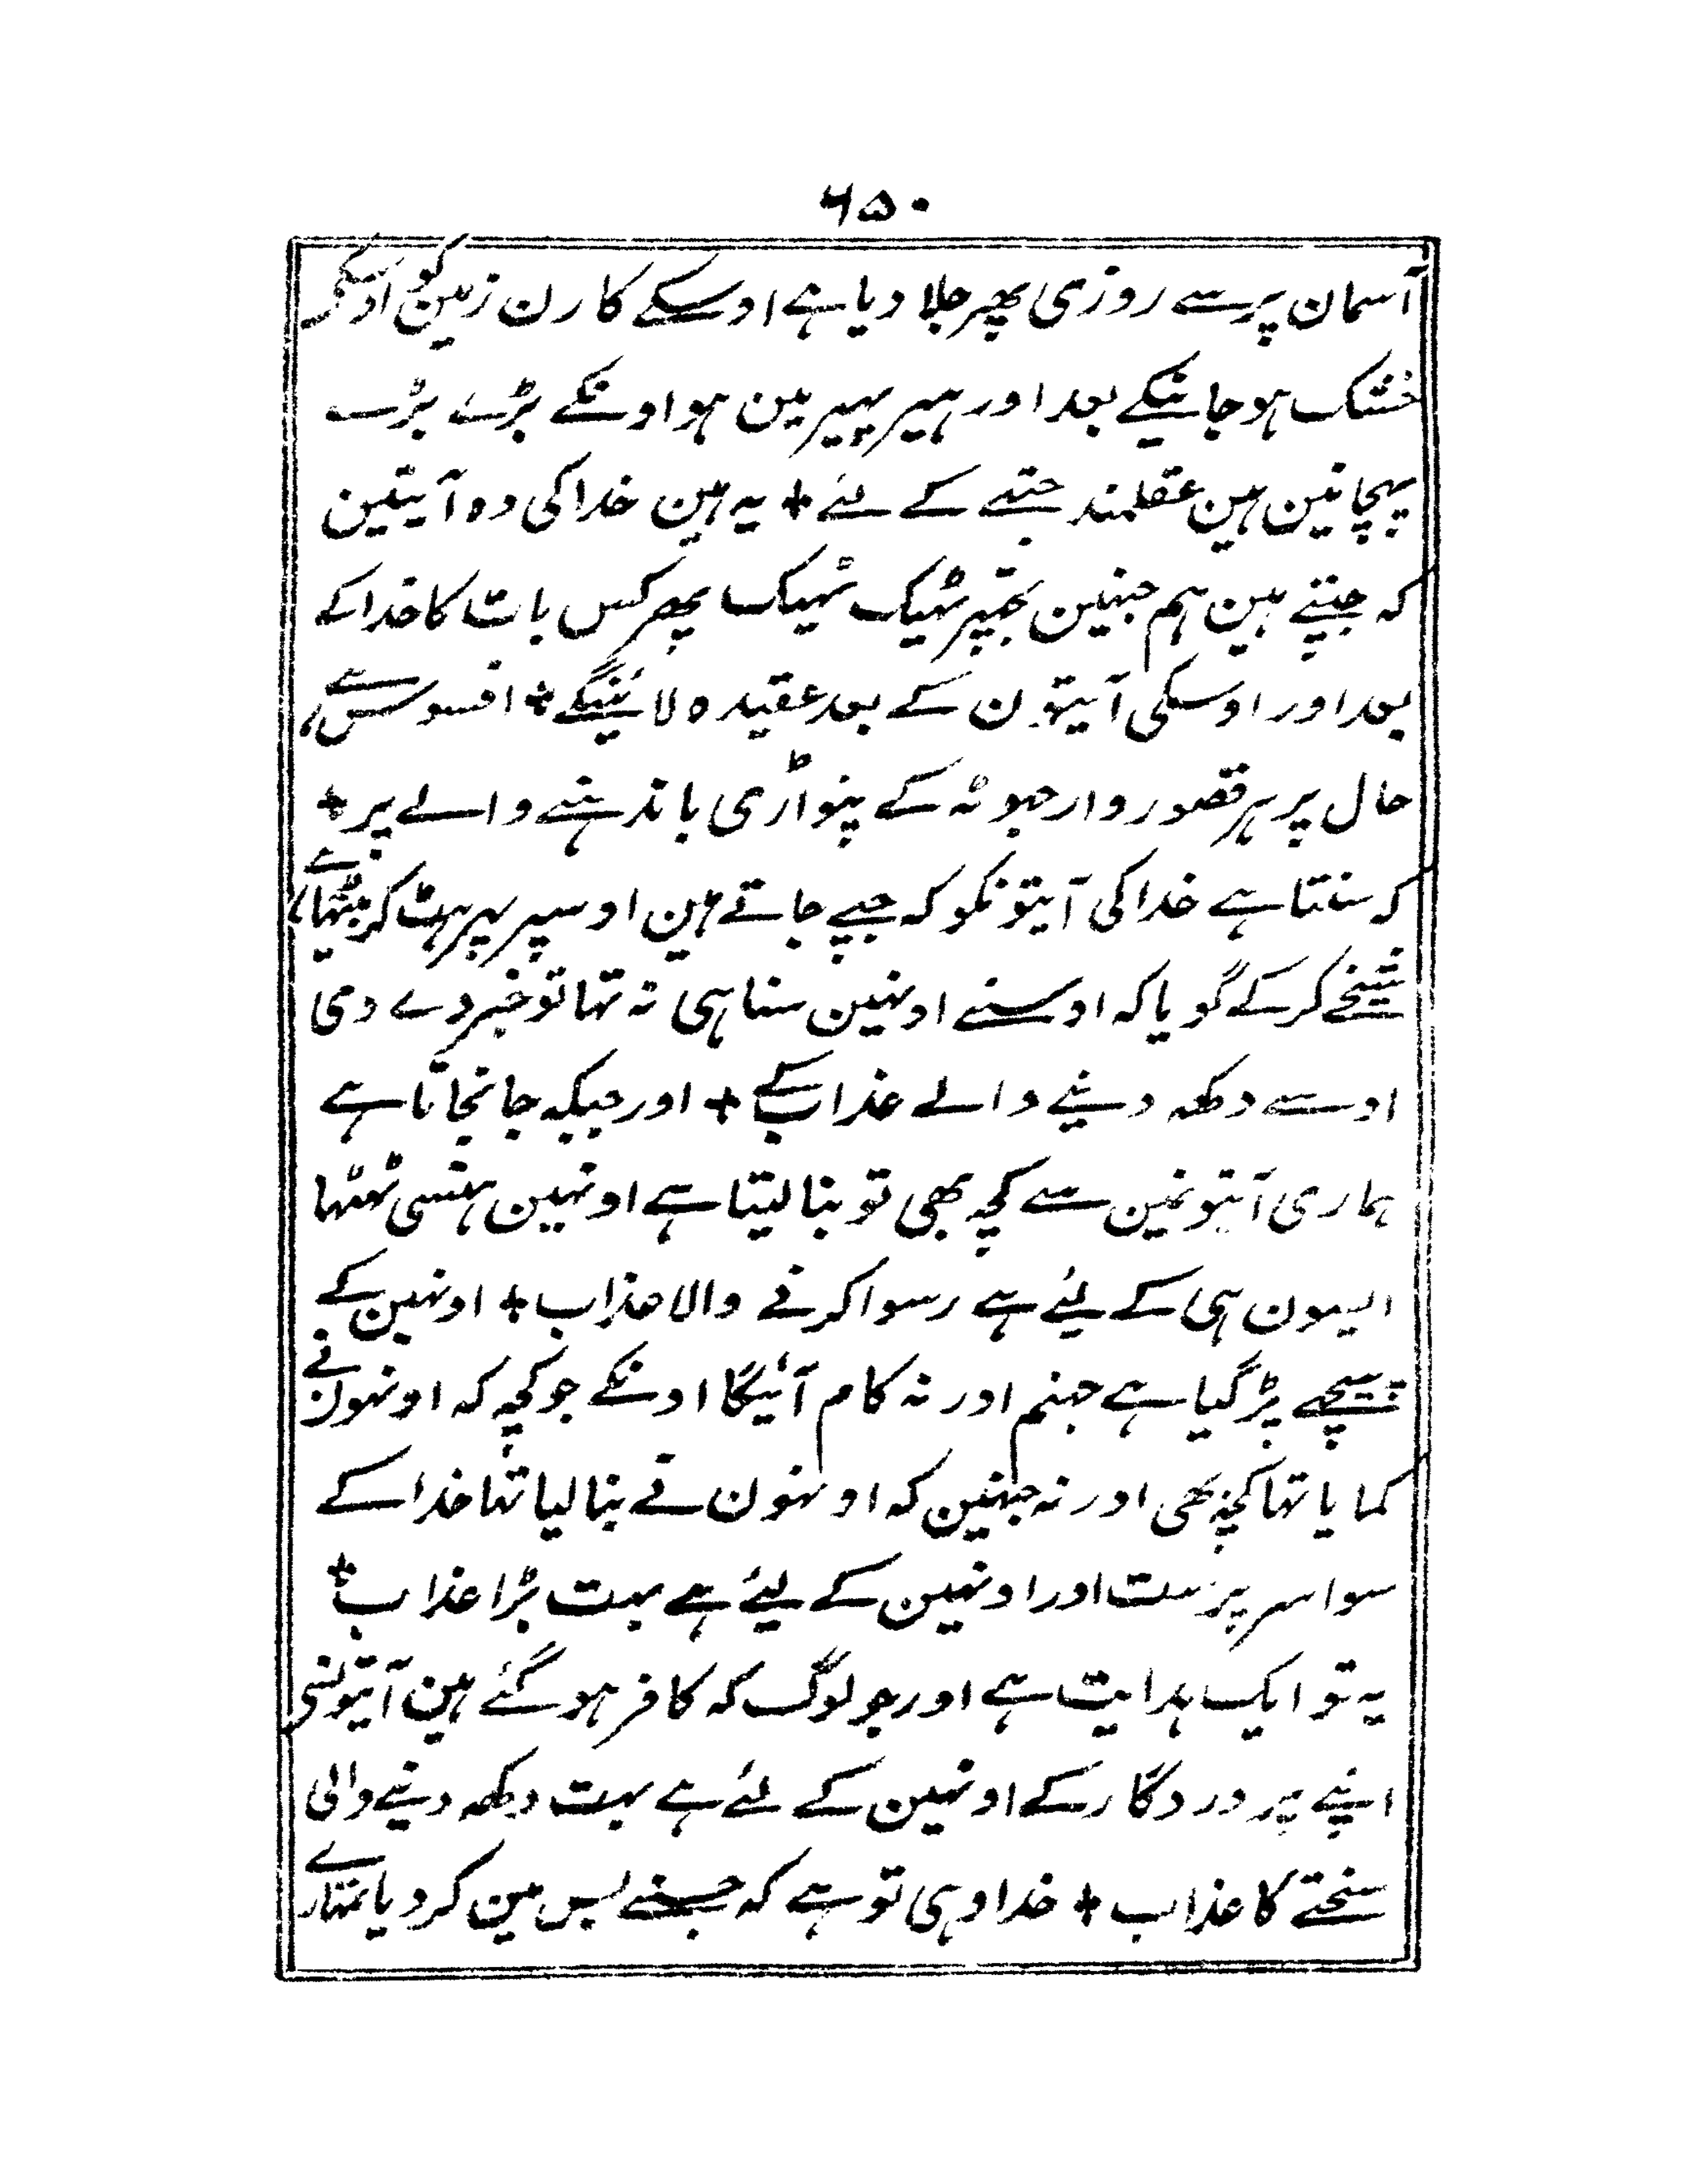 ۶۵۰
آسمان پر سے روزی پھر جلا دیا ہے اوسکے کارن زمین کو اوسکے
خشک ہو جانیکے بعد اور ہیر پہیر مین ہواونکے بڑے بڑے
پہچانین ہین عقلمند جتھے کے لئے + یہ ہین خدا کی وہ آیتین
کہ جپتے ہین ہم جنہین تجہپر ٹہیک ٹہیک پھر کس بات کا خدا کے
بعد اور اوسکی آیتون کے بعد عقیدہ لائینگے + افسوس ہے
حال پر ہر قصور وار جہوٹہ کے پنواڑی باندہنے والے پر +
کہ سنتا ہے خدا کی آیتونکو کہ جپے جاتے ہین اوسپر پہر ہٹ کر
شیخے کر کے گویا کہ اوسنے اونہین سنا ہی نہ تہا تو خبر دے دمی
اوسے دکھہ دینے والے عذاب کے + اور جبکہ جانجاتا ہے
ہماری آیتونمین سے کچہ بھی تو بنا لیتا ہے اونہین ہنسی ٹہٹہا
ایسون ہی کے لیئے ہے رسوا کرنے والا عذاب + اونہین کے
پیچہے پڑ گیا ہے جہنم اور نہ کام آئیگا اونکے جو کچہ کہ اونہون نے
کمایا تہا کچہ بھی اور نہ جنہین کہ اونہون نے بنا لیا تہا خدا کے
سوا سرپرست اور اونہین کے لیئے ہے بہت بڑا عذاب +
یہ تو ایک ہدایت ہے اور جو لوگ کہ کافر ہو گئے ہین آیتونسے
اپنے پروردگار کے اونہین کے لئے ہے بہت دکھہ دینے والی
سختے کا عذاب + خدا وہی تو ہے کہ جسنے بس مین کر دیا تمہارے